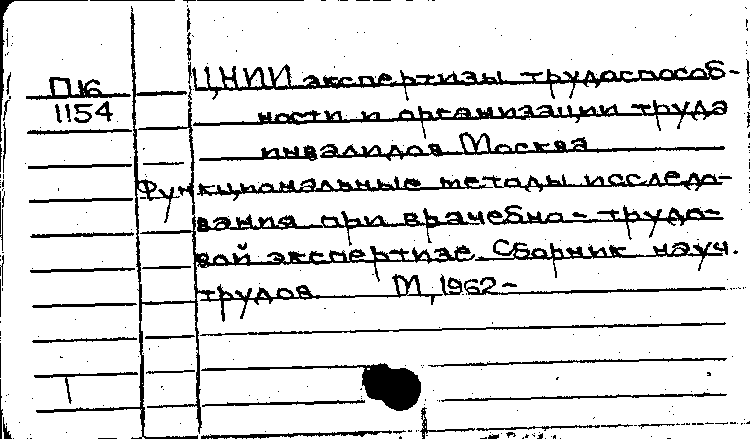 П16
1154
ЦНИИ экспертизы трудоспособ-
ности и организации труда
инвалидов Москва
Функциональные методы исследо-
вания при врачебно-трудо-
вой экспертизе. Сборник науч.
трудов. М, 1962-